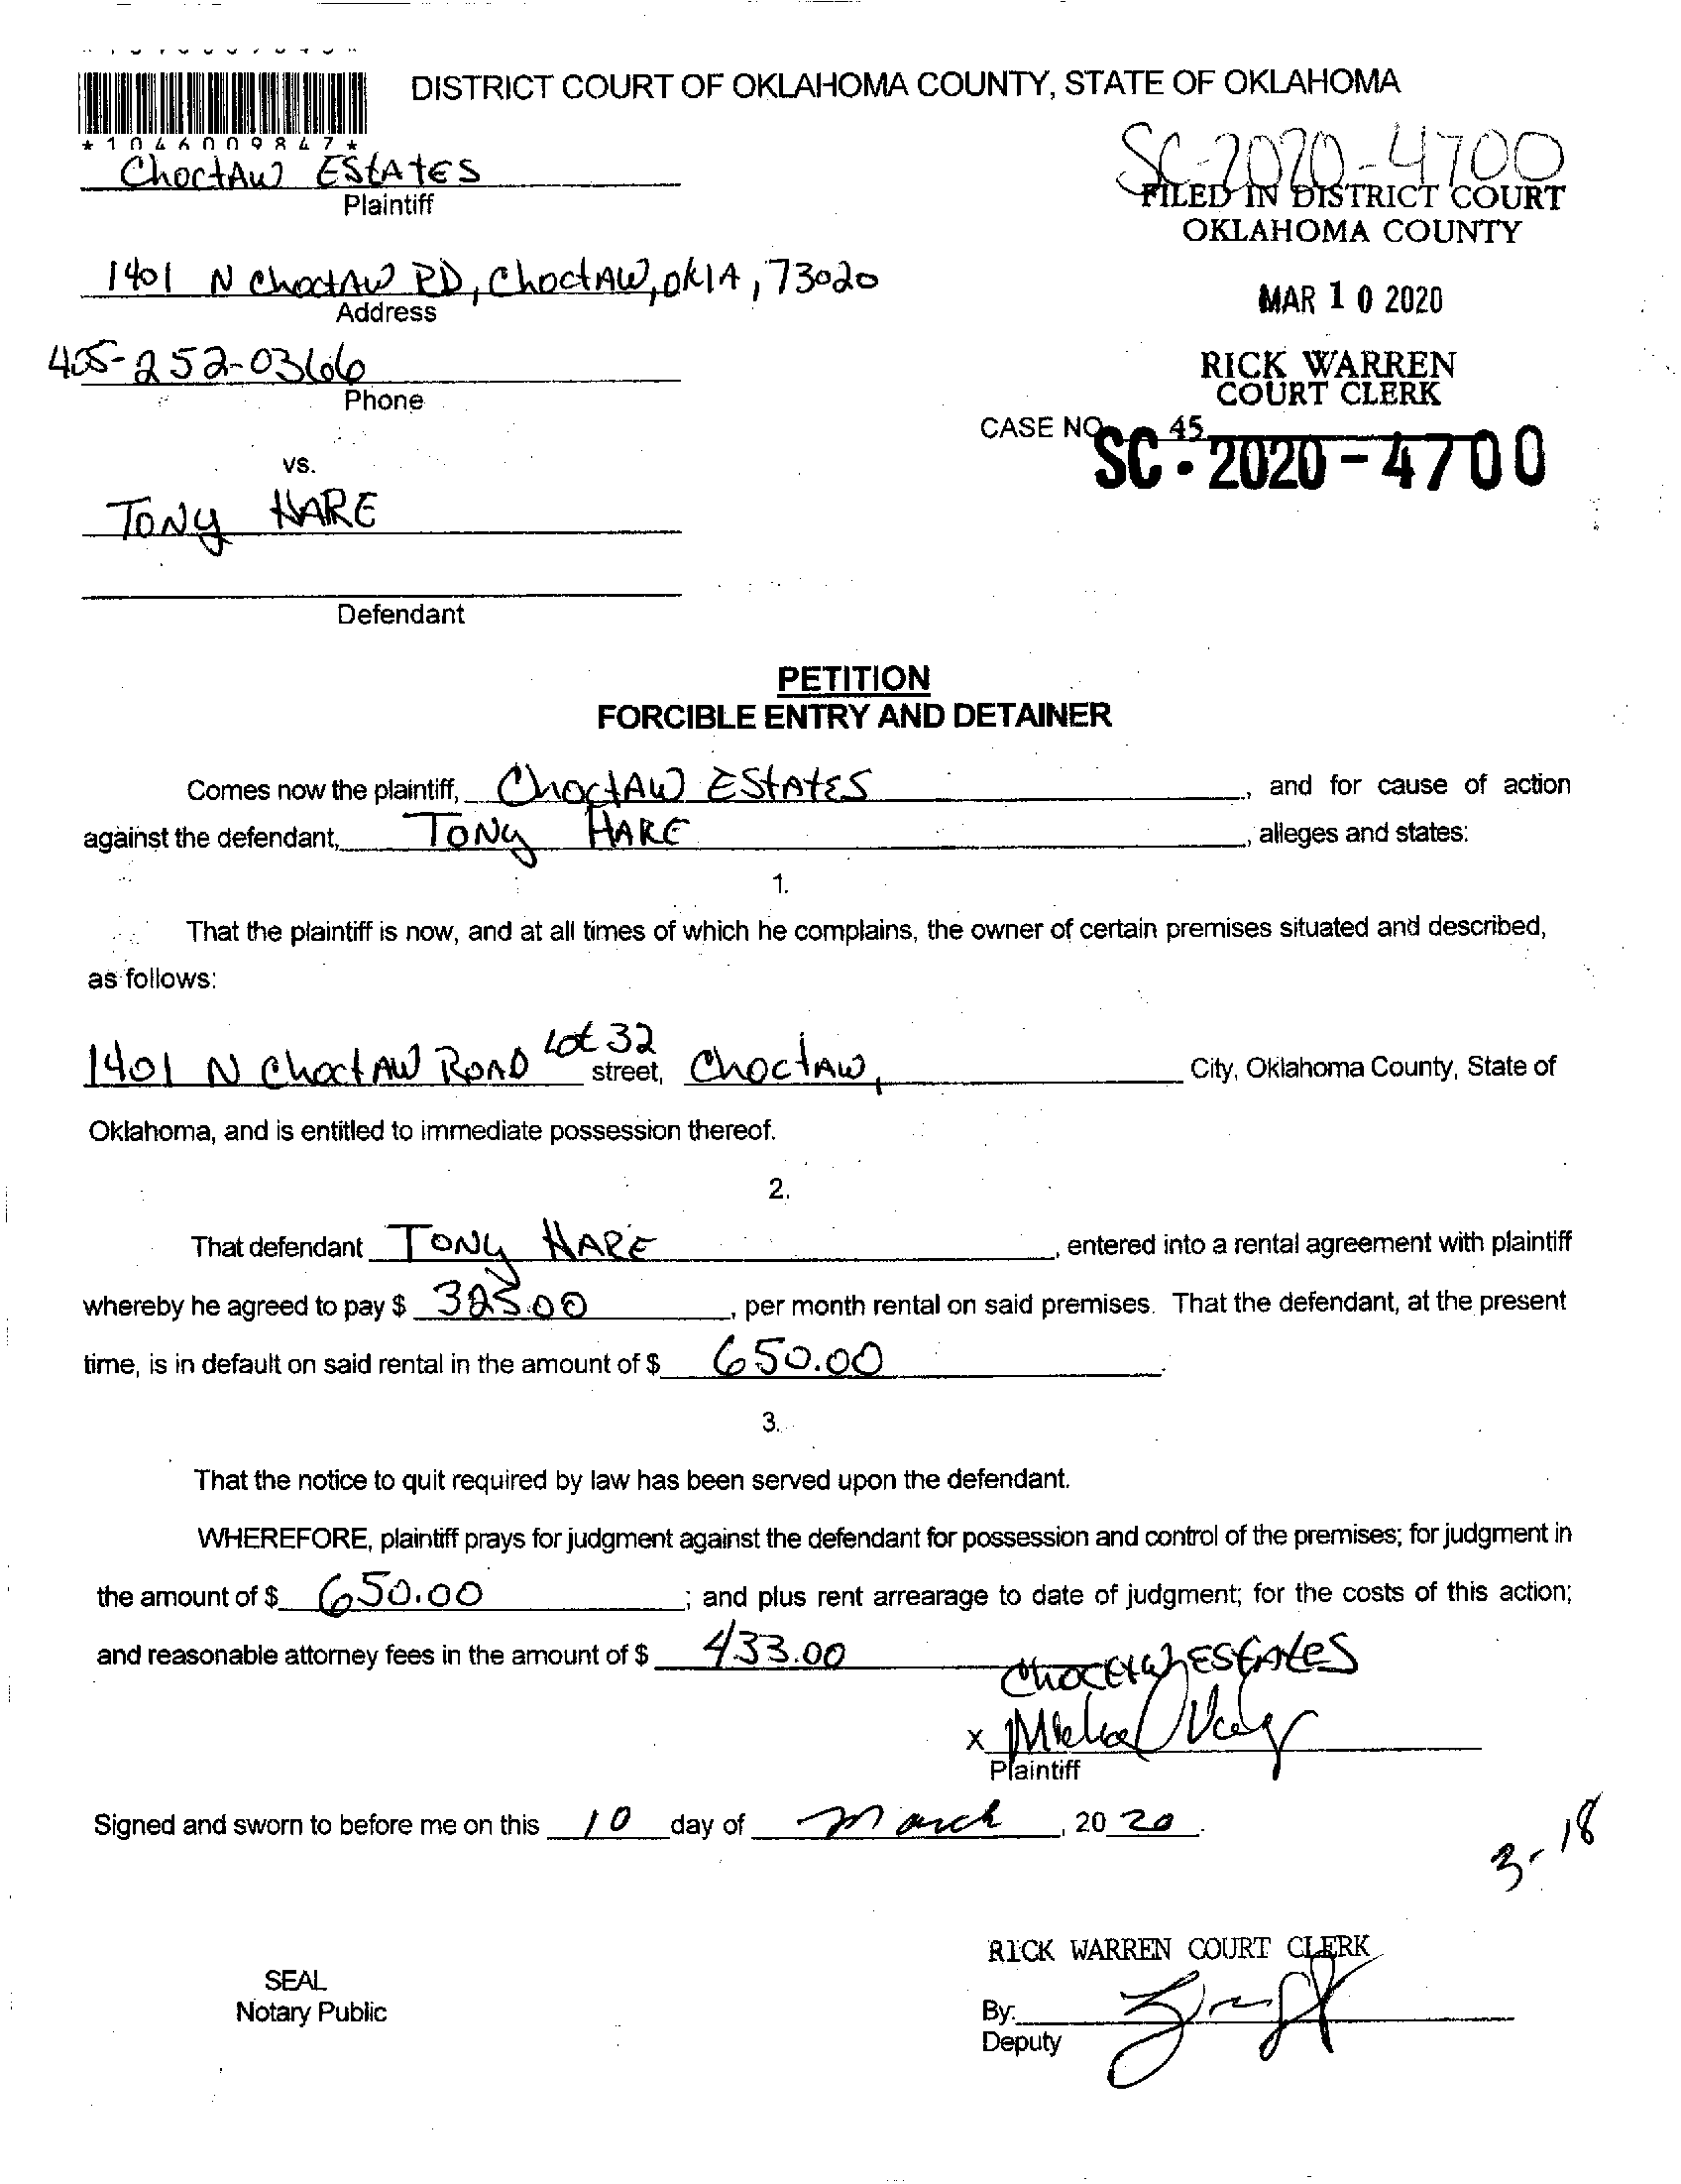 DISTRICT COURT OF OKLAHOMA COUNTY, STATE OF OKLAHOMA
*1046009847*
SC-2020-4700
Choctaw Estates
Plaintiff
FILED IN DISTRICT COURT
OKLAHOMA COUNTY
1401 N Choctaw RD, Choctaw, OklA, 73020
Address
MAR 10 2020
405-252-0366
Phone
RICK WARREN
COURT CLERK
45
CASE NO. SC-2020-4700
vs.
Tony HARE
Defendant
PETITION
FORCIBLE ENTRY AND DETAINER
Comes now the plaintiff, Choctaw Estates, and for cause of action
against the defendant, Tony HARE, alleges and states:
1.
That the plaintiff is now, and at all times of which he complains, the owner of certain premises situated and described,
as follows:
1401 N Choctaw Road Lot 32 street, Choctaw, City, Oklahoma County, State of
Oklahoma, and is entitled to immediate possession thereof.
2.
That defendant Tony HARE, entered into a rental agreement with plaintiff
whereby he agreed to pay $ 325.00, per month rental on said premises. That the defendant, at the present
time, is in default on said rental in the amount of $ 650.00.
3.
That the notice to quit required by law has been served upon the defendant.
WHEREFORE, plaintiff prays for judgment against the defendant for possession and control of the premises; for judgment in
the amount of $ 650.00; and plus rent arrearage to date of judgment; for the costs of this action;
and reasonable attorney fees in the amount of $ 433.00
Choctaw Estates
X
Plaintiff
Signed and sworn to before me on this 10 day of March, 20 20.
3-18
RICK WARREN COURT CLERK
SEAL
Notary Public
By:
Deputy